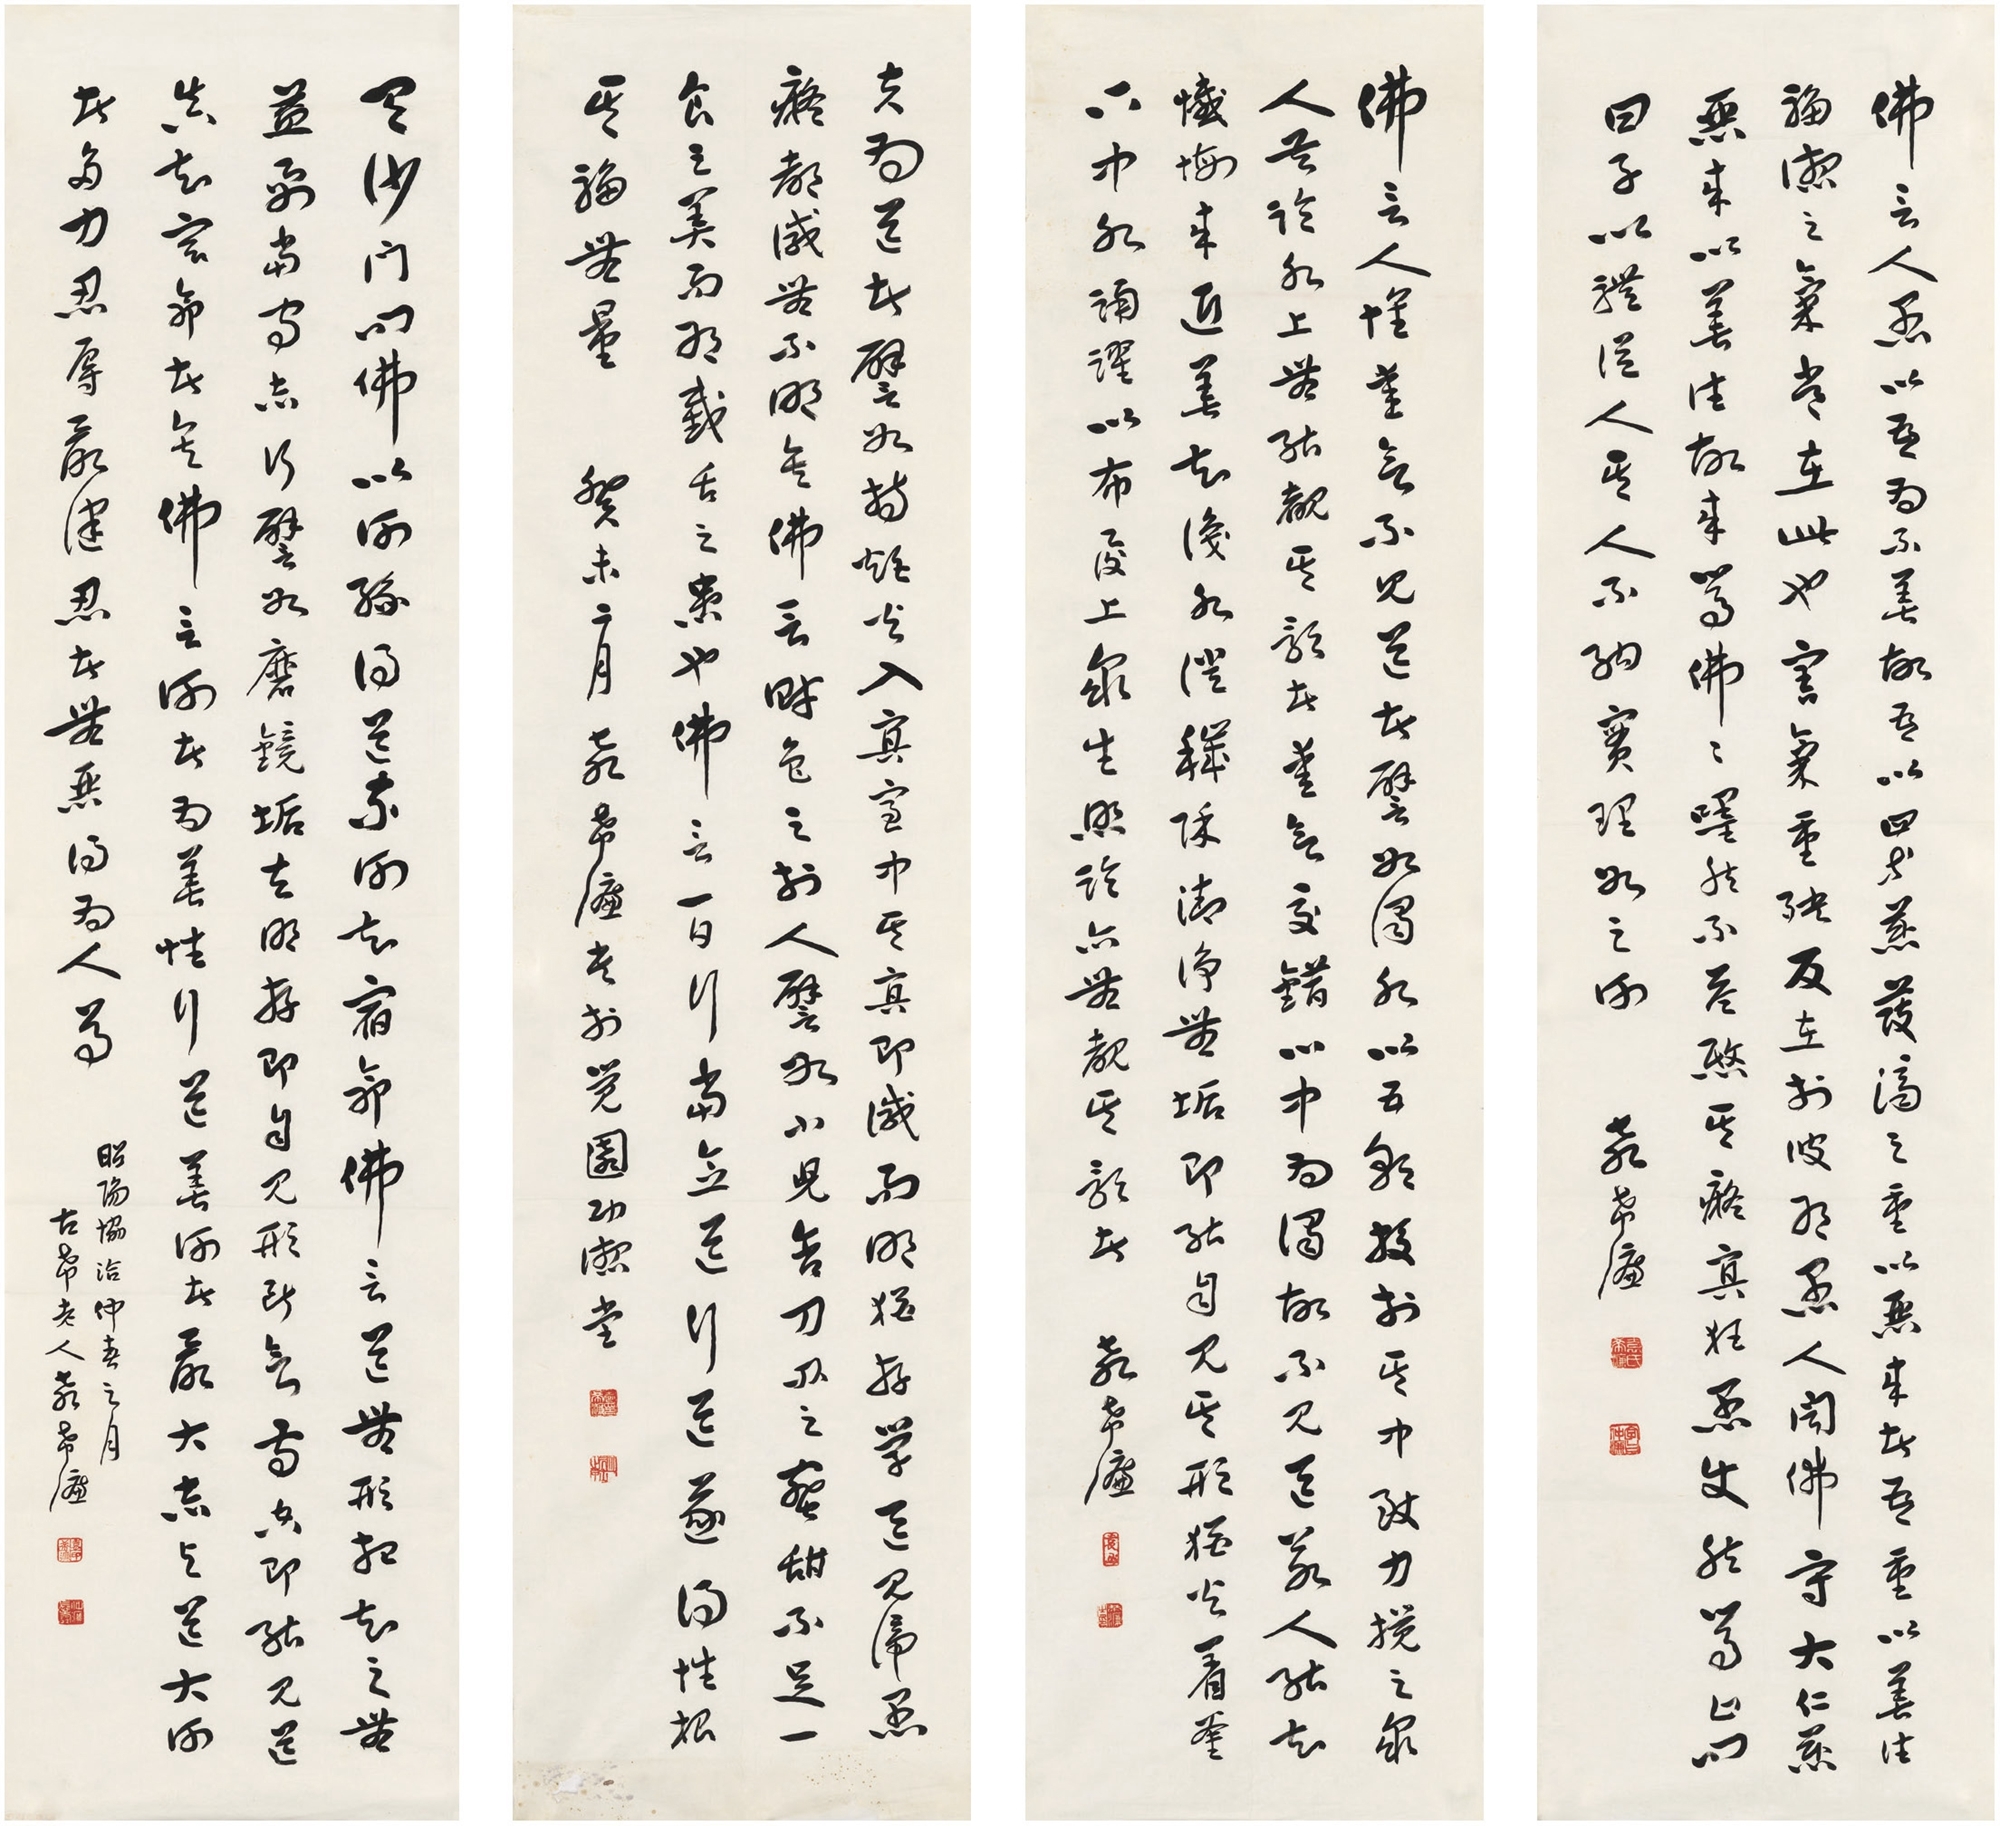 佛言人愚以吾為不善故吾以四等慈護濟之重以惡來者吾重以善往
福德之氣常在此也害氣重殃反在於彼有愚人聞佛守大仁慈
惡來以善往故來罵佛々嘿然不答愍其癡冥狂愚使然罵止問
曰子以禮從人其人不納實理如之何 袁希濂
佛言人懷愛欲不見道者譬如濁水以五彩投於其中致力攪之眾
人共臨水上無能覩其影者愛欲交錯心中為濁故不見道若人能知
懺悔來近善知識水澄穢除清淨無垢即能自見其形猶火着釜
下中水踊躍以布覆上眾生照臨亦無覩其影者 袁希濂
夫為道者譬如持炬火入冥室中其冥即滅而明猶存學道見諦愚
癡都滅無不明矣佛言財色之於人譬如小兒舐刀刃之蜜甜不足一
食之美而有截舌之患也佛言一日行當念道行道遂得信根
其福無量 癸未二月袁希濂書於覺園功德堂
有沙門問佛以何緣得道奈何知宿命佛言道無形相知之無
益要當守志行譬如磨鏡垢去明存即自見形斷欲守空即能見道
真知宿命者矣佛言何者為善惟行道善何者最大志與道大何
者多力忍辱最健忍者無惡得為人尊
昭陽協洽仲春之月
古希老人袁希濂